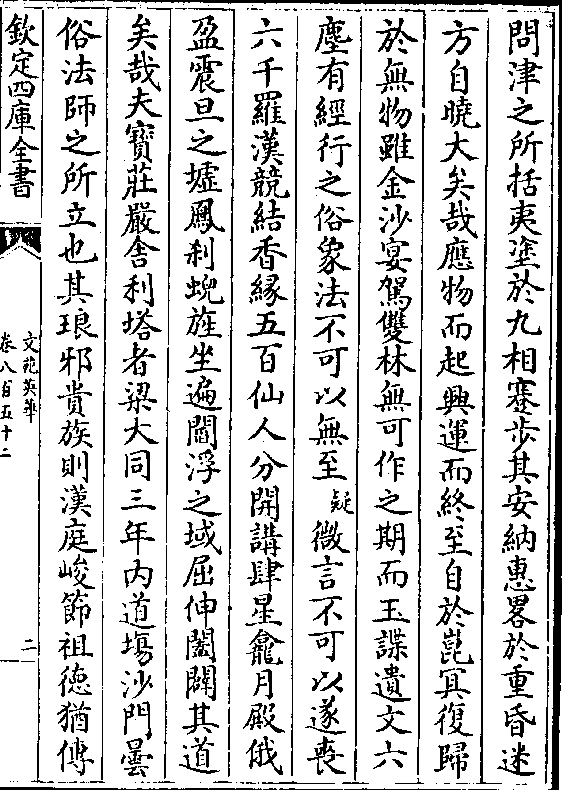 問津之所括夷塗於九相蹇步其安納惠畧於重昏迷
方自曉大矣哉應物而起興運而終至自於嵬冥復歸
於無物雖金沙宴駕雙林無可作之期而玉諜遺文六
塵有經行之俗象法不可以無至疑微言不可以遂喪
六千羅漢競結香緣五百仙人分開講肆星龕月殿俄
盈震旦之墟鳳刹蜺旌坐遍閻浮之域屈伸闔闢其道
矣哉夫寶莊嚴舍利塔者梁大同三年内道塲沙門曇
俗法師之所立也其琅邪貴族則漢庭峻節祖德猶傳
欽定四庫全書
文苑英華
卷八百五十二
二